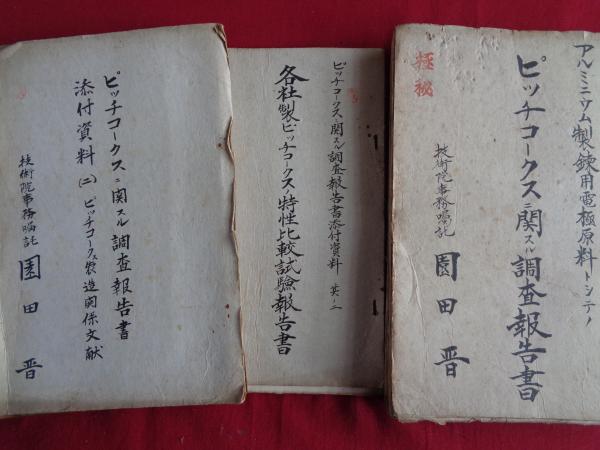 アルミニウム製錬用電極原料トシテノ
極秘
ピッチコークスニ関スル調査報告書
技術院事務嘱託 園田晋
ピッチコークスニ関スル調査報告書添付資料 其ノ二
各社製ピッチコークスノ特性比較試験報告書
ピッチコークスニ関スル調査報告書
添付資料 (二) ピッチコークス製造関係文献
技術院事務嘱託 園田晋